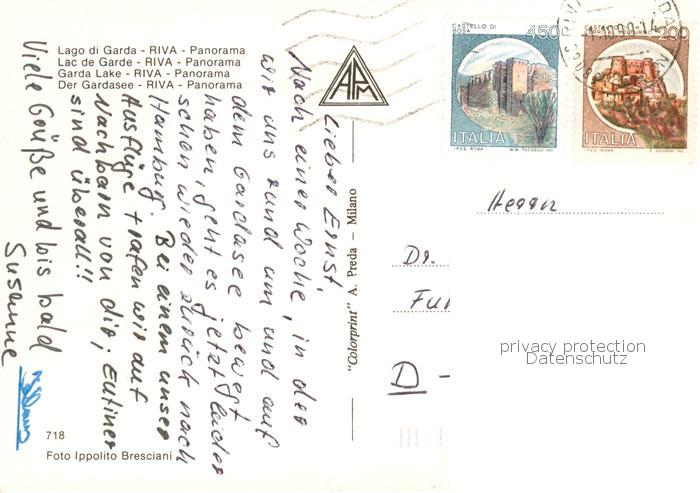 Lago di Garda - RIVA - Panorama
Lac de Garde - RIVA - Panorama
Garda Lake - RIVA - Panorama
Der Gardasee - RIVA - Panorama
APM
CASTELLO DI
BOSA
450
ITALIA
I.P.Z.S. ROMA
200
ITALIA
I.P.Z.S. ROMA
Lieber Ernst
Nach einer Woche, in der
wir uns rund um und auf
dem Gardasee bewegt
haben, geht es jetzt leider
schon wieder zurück nach
Hamburg. Bei einem unser
Ausflüge trafen wir auf
Nachbarn von dir; Eutiner
sind überall!!
Viele Grüße und bis bald
Susanne
"Colorprint" A. Preda — Milano
Herrn
Dr.
D -
privacy protection
Datenschutz
718
Foto Ippolito Bresciani